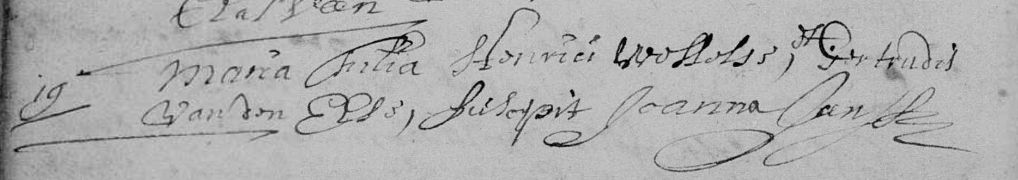 19 Maria filia Henrici Wollels, et Gertrudis
van den Els, suscepit Joanna Jansen